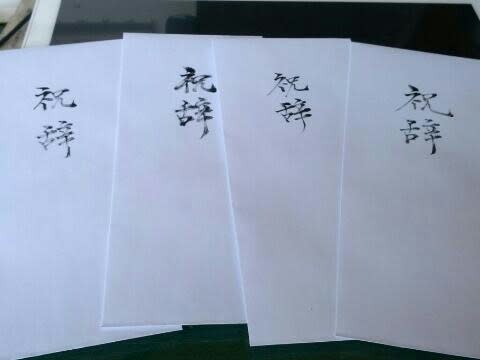 祝辞
祝辞
祝辞
祝辞